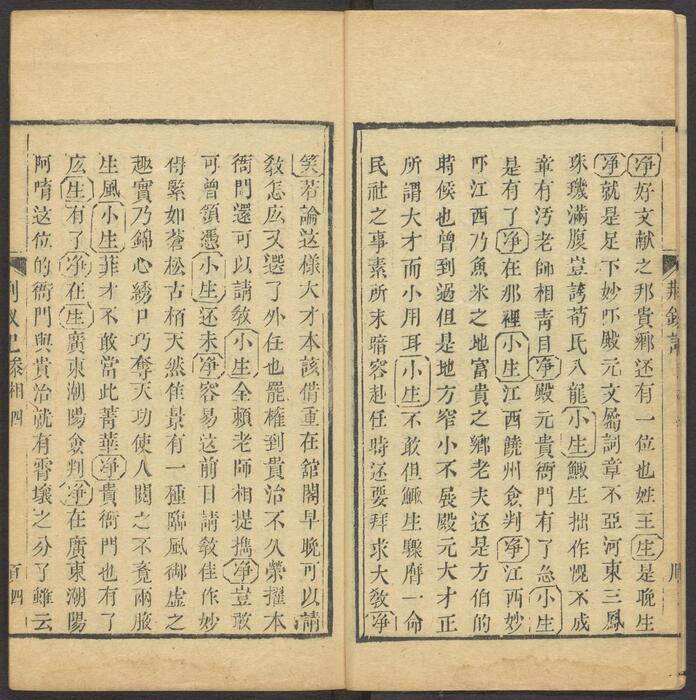 淨好文献之邦貴鄉还有一位也姓王生是晚生
淨就是足下妙吓殿元文屬詞章不亞河東三鳳
珠璣滿腹豈誇荀氏八龍小生鯫生拙作愧不成
章有汚老師相靑目淨殿元貴衙門有了念小生
是有了淨在那裡小生江西饒州僉判淨江西妙
吓江西乃魚米之地富貴之鄉老夫还是方伯的
時候也曾到過但是地方窄小不展殿元大才正
所謂大才而小用耳小生不敢但鯫生驟膺一命
民社之事素所未暗容赴任時还要拜求大敎淨
笑若論这様大才本該借重在舘閣早晚可以請
敎怎庅又選了外任也罷權到貴治不久榮擢本
衙門還可以請敎小生全賴老師相提擕淨豈敢
可曾領憑小生还未淨容易这前日請敎佳作妙
得緊如蒼松古栢天然隹景有一種臨風御虛之
趣實乃錦心綉口巧奪天功使人閱之不覔兩腋
生風小生菲才不敢當此菁華淨貴衙門也有了
庅生有了淨在生廣東潮陽僉判淨在廣東潮陽
阿唷这位的衙門與貴治就有霄壤之分了雖云
荆釵記
叅相
四
百四